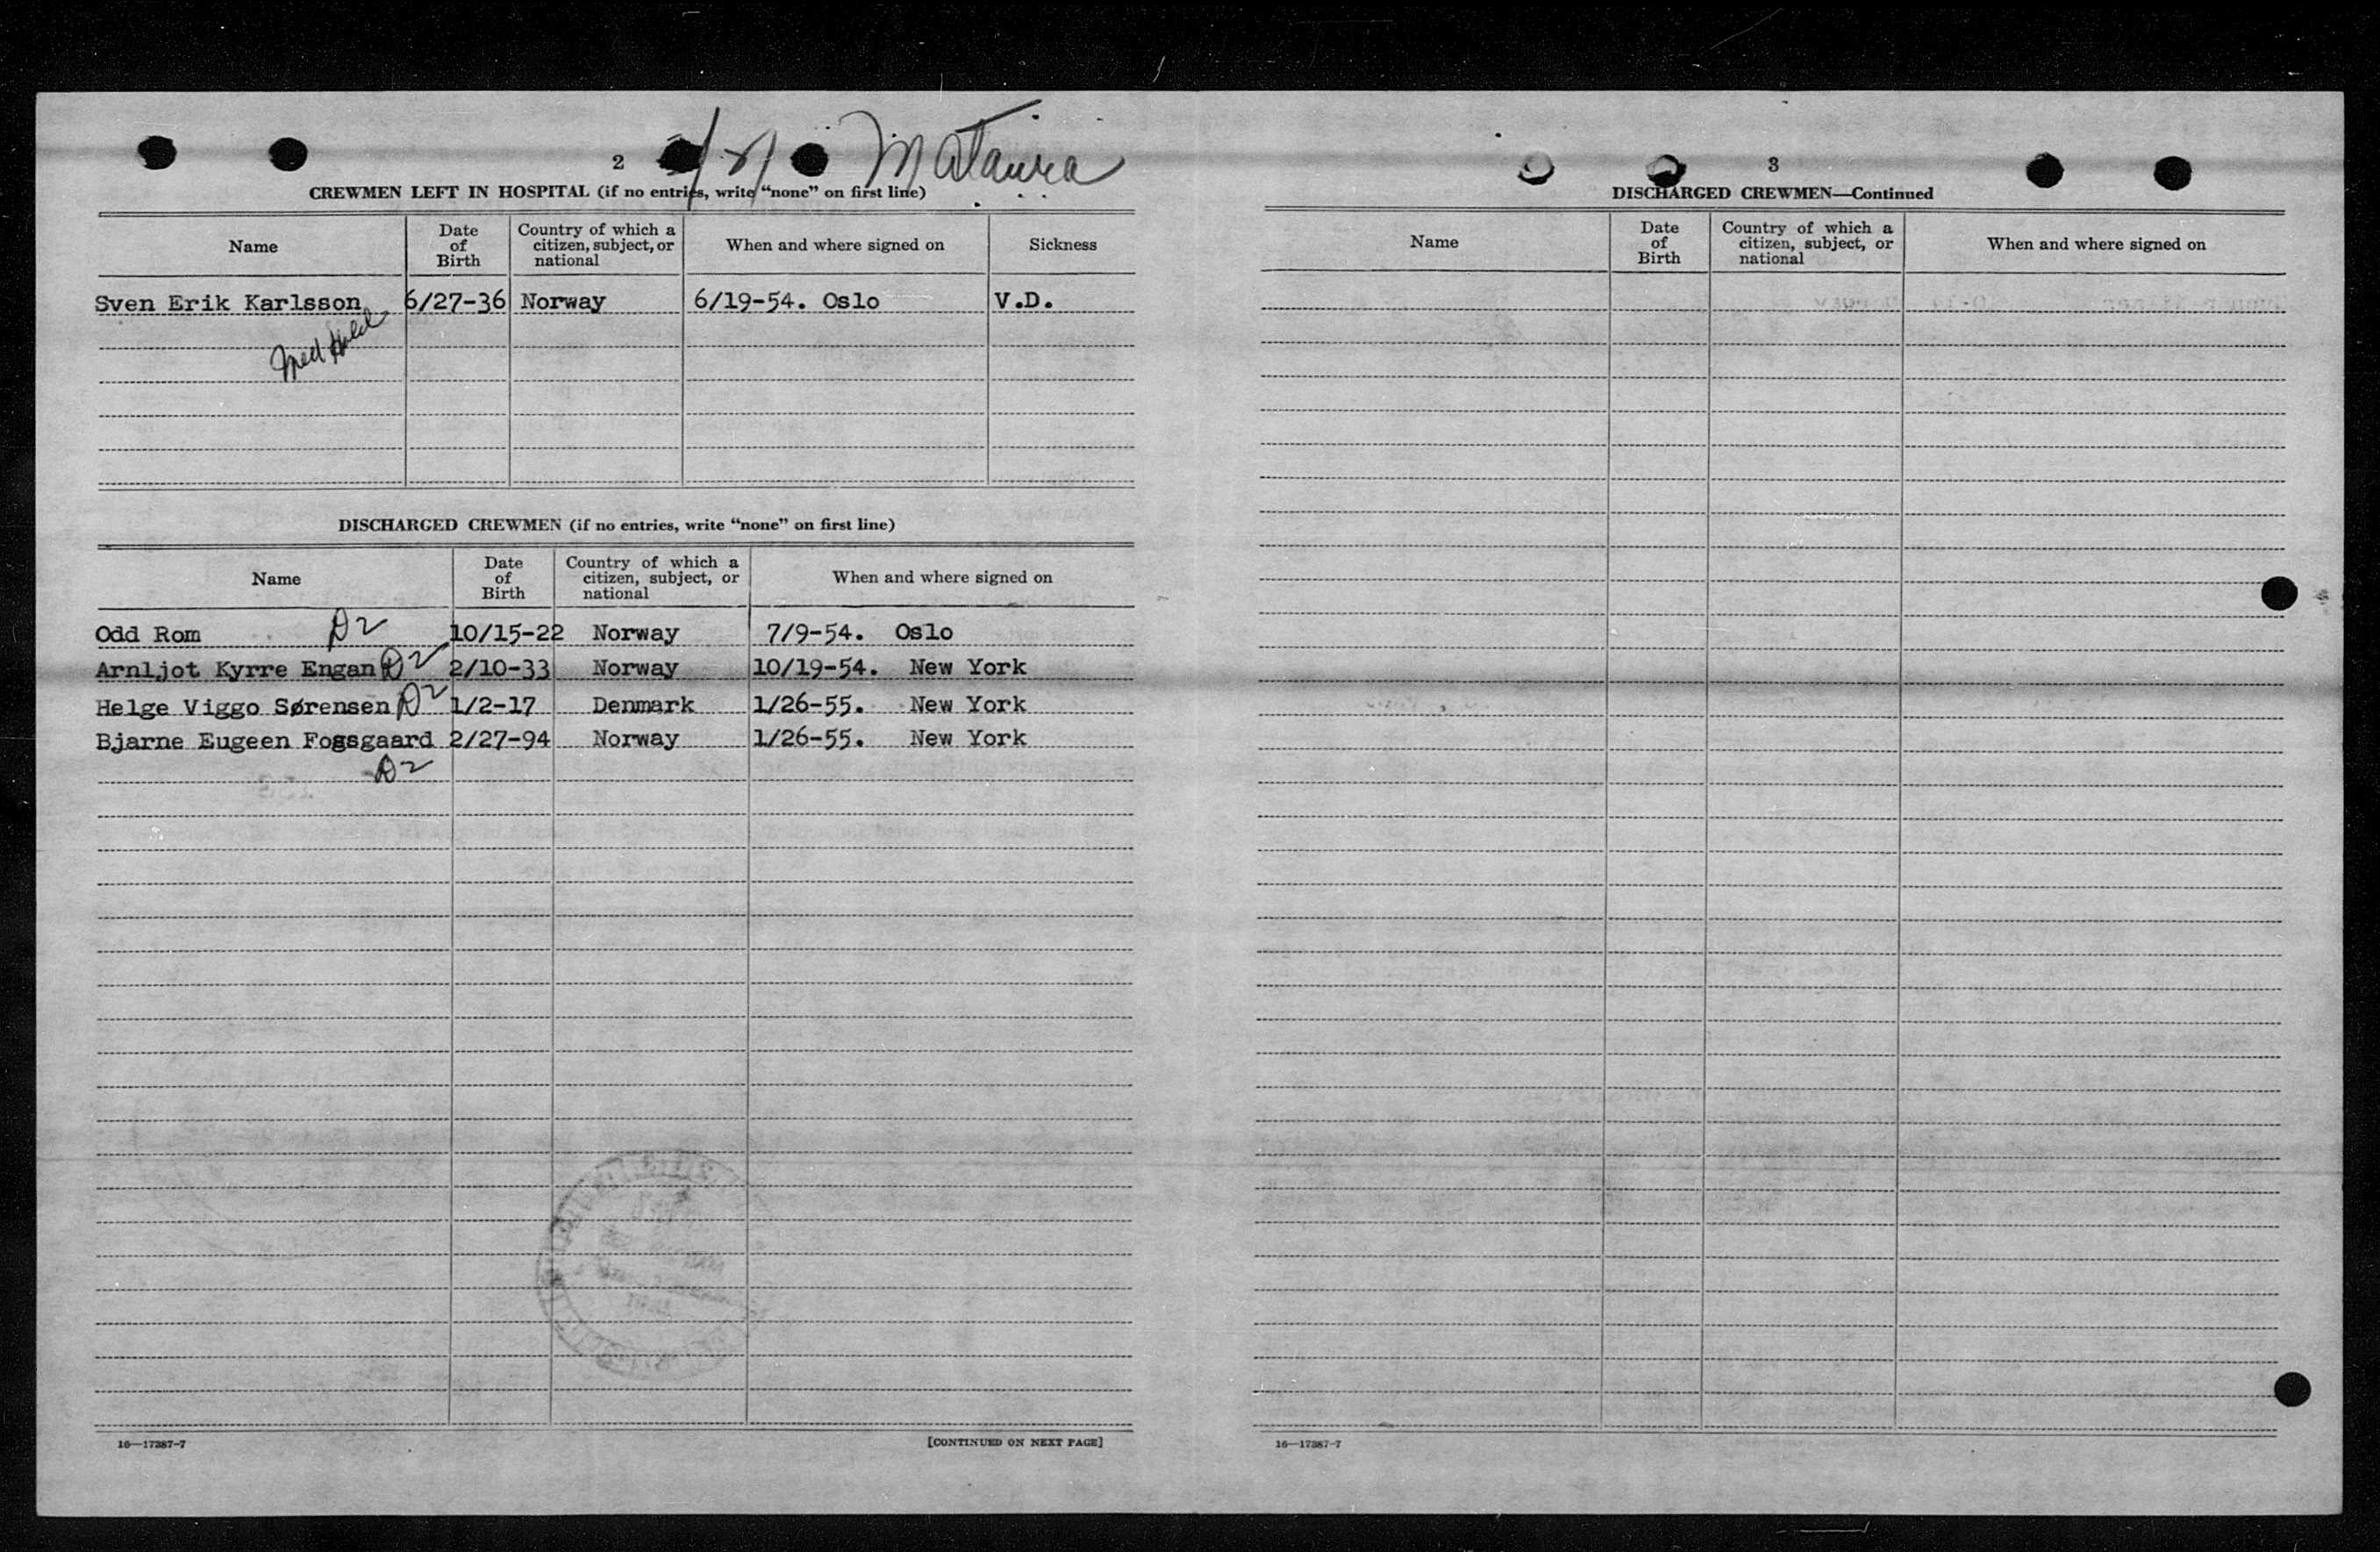 2
Mataura
CREWMEN LEFT IN HOSPITAL (if no entries, write "none" on first line)
Name Date of Birth Country of which a citizen, subject, or national When and where signed on Sickness
Sven Erik Karlsson 6/27-36 Norway 6/19-54. Oslo V.D.
Med Hold
DISCHARGED CREWMEN (if no entries, write "none" on first line)
Name Date of Birth Country of which a citizen, subject, or national When and where signed on
Odd Rom D2 10/15-22 Norway 7/9-54. Oslo
Arnljot Kyrre Engan D2 2/10-33 Norway 10/19-54. New York
Helge Viggo Sørensen D2 1/2-17 Denmark 1/26-55. New York
Bjarne Eugeen Fogsgaard 2/27-94 Norway 1/26-55. New York
D2
16—17387-7 [CONTINUED ON NEXT PAGE]
3
DISCHARGED CREWMEN—Continued
Name Date of Birth Country of which a citizen, subject, or national When and where signed on
16—17387-7